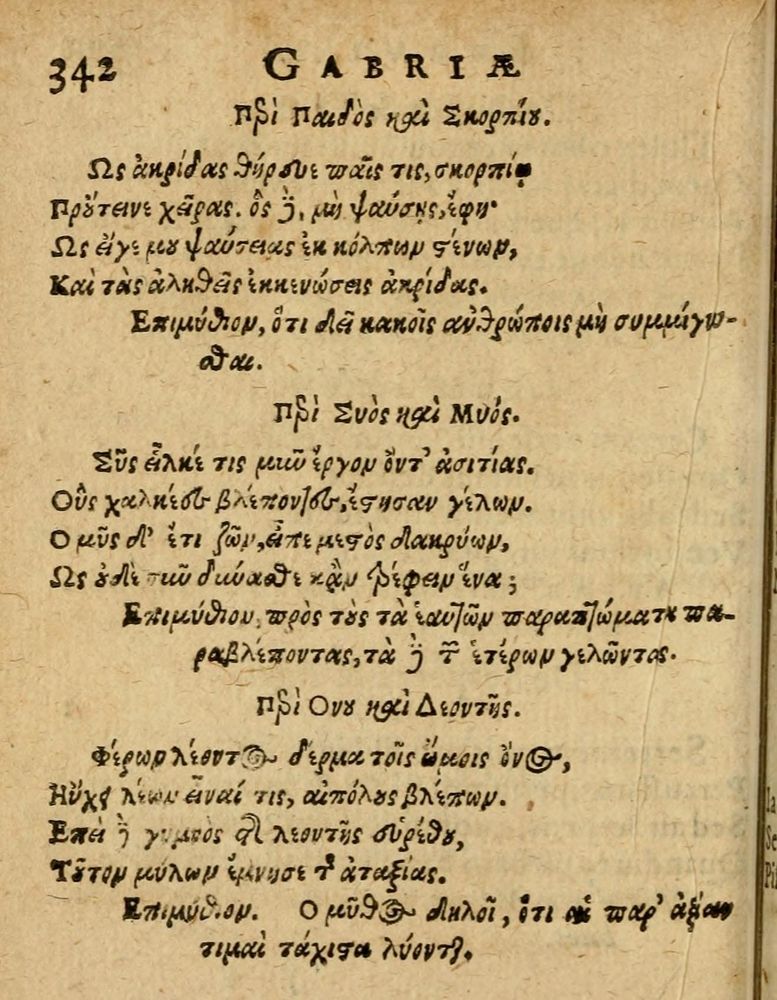 342 GABRIÆ
Περὶ Παιδὸς καὶ Σκορπίου.
Ως ἀκρίδας θήρευε παῖς τις, σκορπίῳ
Προύτεινε χεῖρας. ὃς δὲ, μὴ ψαύσῃς, ἔφη·
Ως εἴγε μου ψαύσειας ἐκ κόλπων στένων,
Καὶ τὰς ἀληθεῖς ἐκκενώσεις ἀκρίδας.
Επιμύθιον, ὅτι δεῖ κακοῖς ἀνθρώποις μὴ συμμίγνυ-
σθαι.
Περὶ Συὸς καὶ Μυός.
Σῦς εἷλκέ τις μῦν ἔργον ὄντ' ἀσιτίας.
Οὓς χαλκέες βλέποντες, ἔστησαν γέλων.
Ο μῦς δ' ἔτι ζῶν, εἶπε μεστὸς δακρύων,
Ως οὐδὲ σῦν δύνασθε κἂν τρέφειν ἕνα;
Επιμύθιον, πρὸς τοὺς τὰ ἑαυτῶν παραπτώματα πα-
ραβλέποντας, τὰ δὲ τῶν ἑτέρων γελῶντας.
Περὶ Ονου καὶ Λεοντῆς.
Φέρων λέοντος δέρμα τοῖς ὤμοις ὄνος,
Ηὔχει λέων εἶναί τις, αἰπόλους βλέπων.
Επεὶ δὲ γυμνὸς τῆς λεοντῆς εὑρέθη,
Τοῦτον μύλων ἔμνησε τῆς ἀταξίας.
Επιμύθιον. Ο μῦθος δηλοῖ, ὅτι αἱ παρ' ἀξίαν
τιμαὶ τάχιστα λύονται.